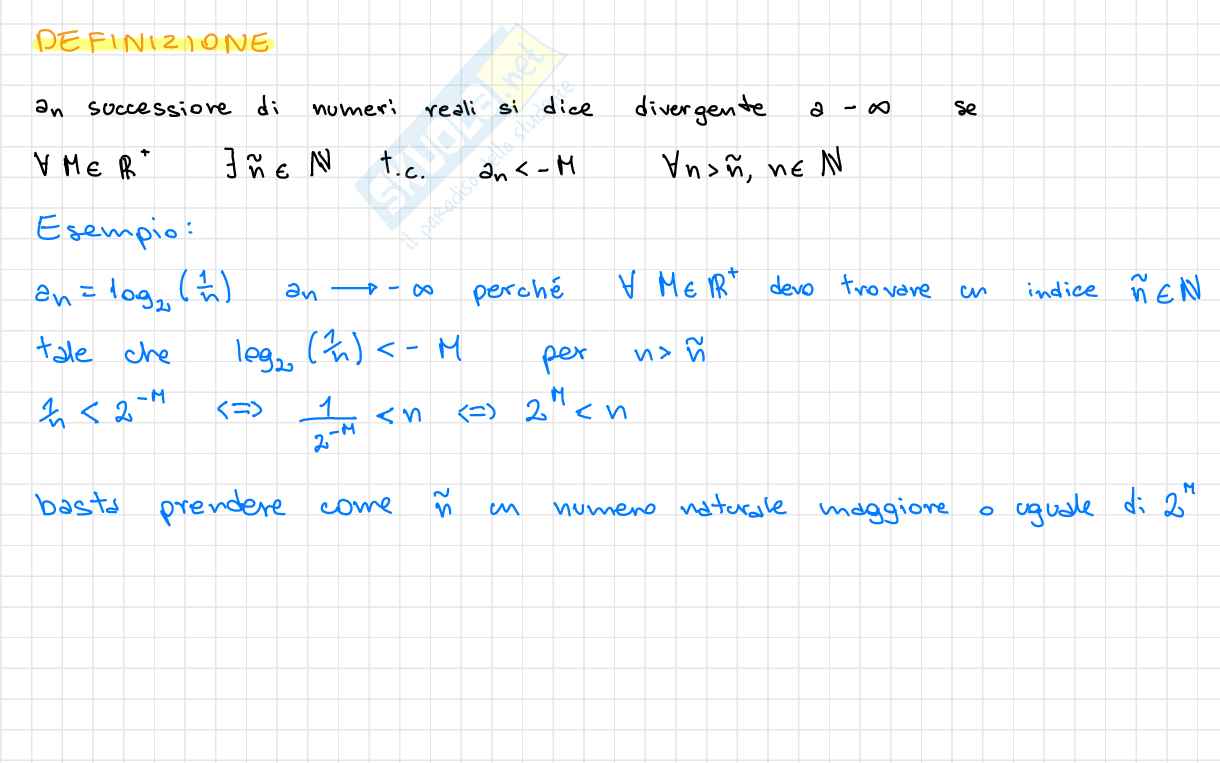 DEFINIZIONE
an successione di numeri reali si dice divergente a -∞ se
∀ M ∈ ℝ⁺ ∃ ñ ∈ ℕ t.c. an < -M ∀n > ñ, n ∈ ℕ
Esempio:
an = log₂ (1/n) an → -∞ perché ∀ M ∈ ℝ⁺ devo trovare un indice ñ ∈ ℕ
tale che log₂ (1/n) < - M per n > ñ
1/n < 2^-M <=> 1/2^-M < n <=> 2^M < n
basta prendere come ñ un numero naturale maggiore o uguale di 2^M
SKUOLA.net
il paradiso dello studente